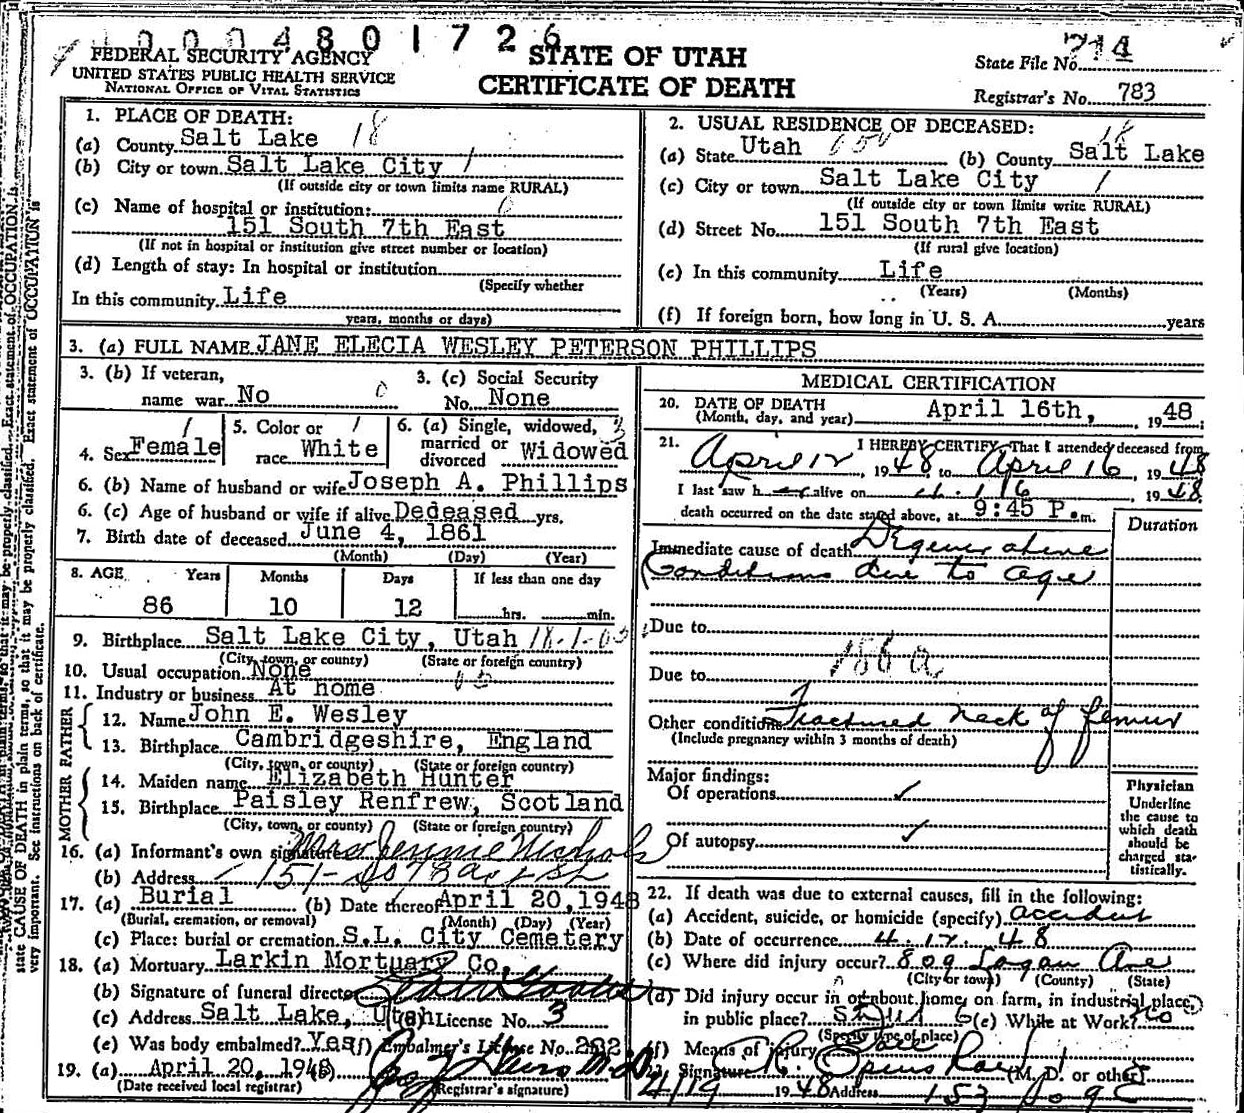 10004801726
FEDERAL SECURITY AGENCY
UNITED STATES PUBLIC HEALTH SERVICE
NATIONAL OFFICE OF VITAL STATISTICS
STATE OF UTAH
CERTIFICATE OF DEATH
State File No. 714
Registrar's No. 783
1. PLACE OF DEATH:
(a) County Salt Lake 18
(b) City or town Salt Lake City 1
(If outside city or town limits name RURAL)
(c) Name of hospital or institution: 0
151 South 7th East
(If not in hospital or institution give street number or location)
(d) Length of stay: In hospital or institution
(Specify whether
In this community Life
years, months or days)
2. USUAL RESIDENCE OF DECEASED:
(a) State Utah (b) County Salt Lake 18
(c) City or town Salt Lake City 1
(If outside city or town limits write RURAL)
(d) Street No. 151 South 7th East
(If rural give location)
(e) In this community Life
(Years) (Months)
(f) If foreign born, how long in U. S. A. years
3. (a) FULL NAME JANE ELECIA WESLEY PETERSON PHILLIPS
3. (b) If veteran,
name war No 0
3. (c) Social Security
No. None
4. Sex Female 1
5. Color or 1
race White
6. (a) Single, widowed, 3
married or
divorced Widowed
6. (b) Name of husband or wife Joseph A. Phillips
6. (c) Age of husband or wife if alive Dedeased yrs.
7. Birth date of deceased June 4, 1861
(Month) (Day) (Year)
8. AGE Years Months Days If less than one day
86 10 12 hrs. min.
9. Birthplace Salt Lake City, Utah
(City, town, or county) (State or foreign country)
10. Usual occupation None
11. Industry or business At home
FATHER
12. Name John E. Wesley
13. Birthplace Cambridgeshire, England
(City, town, or county) (State or foreign country)
MOTHER
14. Maiden name Elizabeth Hunter
15. Birthplace Paisley Renfrew, Scotland
(City, town, or county) (State or foreign country)
16. (a) Informant's own signature Mrs Jennie Nichols
(b) Address 151 - So 7 East St
17. (a) Burial (b) Date thereof April 20, 1948
(Burial, cremation, or removal) (Month) (Day) (Year)
(c) Place: burial or cremation S.L. City Cemetery
18. (a) Mortuary Larkin Mortuary Co.
(b) Signature of funeral director
(c) Address Salt Lake, Utah (d) License No. 3
(e) Was body embalmed? Yes (f) Embalmer's License No. 282
19. (a) April 20, 1948 (b)
(Date received local registrar) (Registrar's signature)
MEDICAL CERTIFICATION
20. DATE OF DEATH
(Month, day, and year) April 16th, 1948;
21. I HEREBY CERTIFY That I attended deceased from
April 12, 1948 to April 16, 1948
I last saw her alive on 1948
death occurred on the date stated above, at 9:45 P.m.
Duration
Immediate cause of death Degenerative
Conditions due to age
Due to
186a
Due to
Other conditions Fractured neck of femur
(Include pregnancy within 3 months of death)
Major findings:
Of operations ✓
Of autopsy ✓
Physician
Underline
the cause to
which death
should be
charged sta-
tistically.
22. If death was due to external causes, fill in the following:
(a) Accident, suicide, or homicide (specify) accident
(b) Date of occurrence 4.12.48
(c) Where did injury occur? 809 Logan Ave
(City or town) (County) (State)
(d) Did injury occur in or about home, on farm, in industrial place,
in public place? (e) While at Work? no
(Specify type of place)
(f) Means of injury Fall
23. Signature (M. D. or other)
4/19 1948 Address
state CAUSE OF DEATH in plain terms, so that it may be properly classified. Exact statement of OCCUPATION is
very important. See instructions on back of certificate.